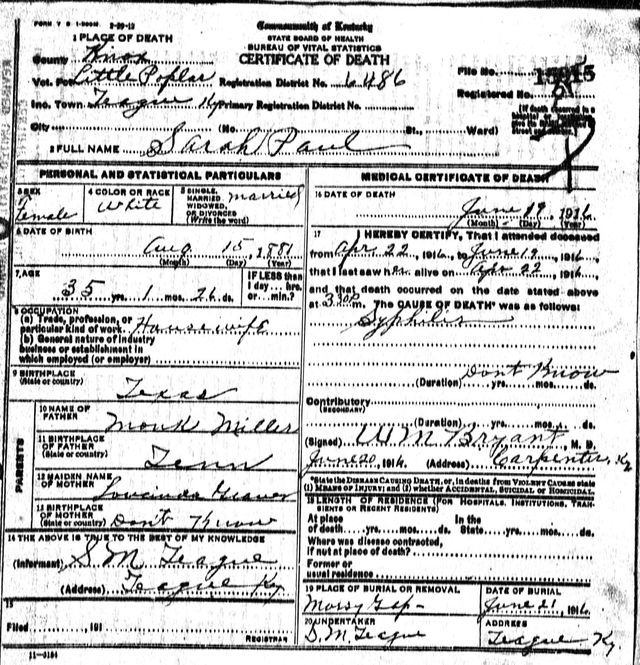 FORM V S 1-
Commonwealth of Kentucky
STATE BOARD OF HEALTH
BUREAU OF VITAL STATISTICS
CERTIFICATE OF DEATH
1 PLACE OF DEATH
County Knox
Vot. Pct Little Poplar Registration District No. 6486
File No. 15915
Inc. Town Teague Ky Primary Registration District No.
Registered No.
(If death occurred in a
City (No. St., Ward)
2 FULL NAME Sarah Paul
PERSONAL AND STATISTICAL PARTICULARS
3 SEX Female
4 COLOR OR RACE White
5 SINGLE, MARRIED, WIDOWED, OR DIVORCED (Write the word) Married
6 DATE OF BIRTH
Aug 15, 1881
(Month) (Day) (Year)
7 AGE
35 yrs. 1 mos. 26 ds.
IF LESS than 1 day... hrs. or... min.?
8 OCCUPATION
(a) Trade, profession, or
particular kind of work Housewife
(b) General nature of industry
business or establishment in
which employed (or employer)
9 BIRTHPLACE
(State or country) Texas
PARENTS
10 NAME OF FATHER Monk Miller
11 BIRTHPLACE OF FATHER (State or country) Tenn
12 MAIDEN NAME OF MOTHER
13 BIRTHPLACE OF MOTHER (State or country) Don't Know
14 THE ABOVE IS TRUE TO THE BEST OF MY KNOWLEDGE
(Informant) S. M. Teague
(Address) Teague Ky
15
Filed, 191
REGISTRAR
11-3184
MEDICAL CERTIFICATE OF DEATH
16 DATE OF DEATH
June 19, 1916
(Month) (Day) (Year)
17 I HEREBY CERTIFY, That I attended deceased
from Apr 22, 1916, to June 19, 1916,
that I last saw her alive on Apr 22, 1916,
and that death occurred on the date stated above
at 330P m. The CAUSE OF DEATH* was as follows:
Syphilis
Dont Know
(Duration) yrs. mos. ds.
Contributory
(SECONDARY)
(Duration) yrs. mos. ds.
(Signed) W M Bryant M. D.
June 20, 1916 (Address) Carpenter, Ky
*State the DISEASE CAUSING DEATH, or, in deaths from VIOLENT CAUSES state
(1) MEANS OF INJURY; and (2) whether ACCIDENTAL, SUICIDAL or HOMICIDAL.
18 LENGTH OF RESIDENCE (FOR HOSPITALS, INSTITUTIONS, TRANSIENTS OR RECENT RESIDENTS)
At place of death yrs. mos. ds. In the State yrs. mos. ds.
Where was disease contracted,
if not at place of death?
Former or
usual residence
19 PLACE OF BURIAL OR REMOVAL Mossy Gap
DATE OF BURIAL June 21, 1916
20 UNDERTAKER S. M. Teague
ADDRESS Teague Ky.